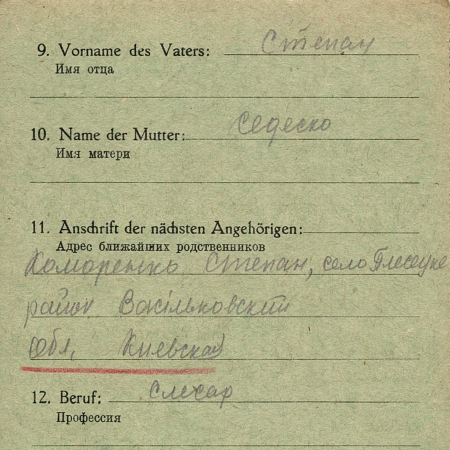 9. Vorname des Vaters: Степан
Имя отца
10. Name der Mutter: Седеско
Имя матери
11. Anschrift der nächsten Angehörigen:
Адрес ближайших родственников
Степан, село
район Васильковский
обл, Киевская
12. Beruf: слесар
Профессия